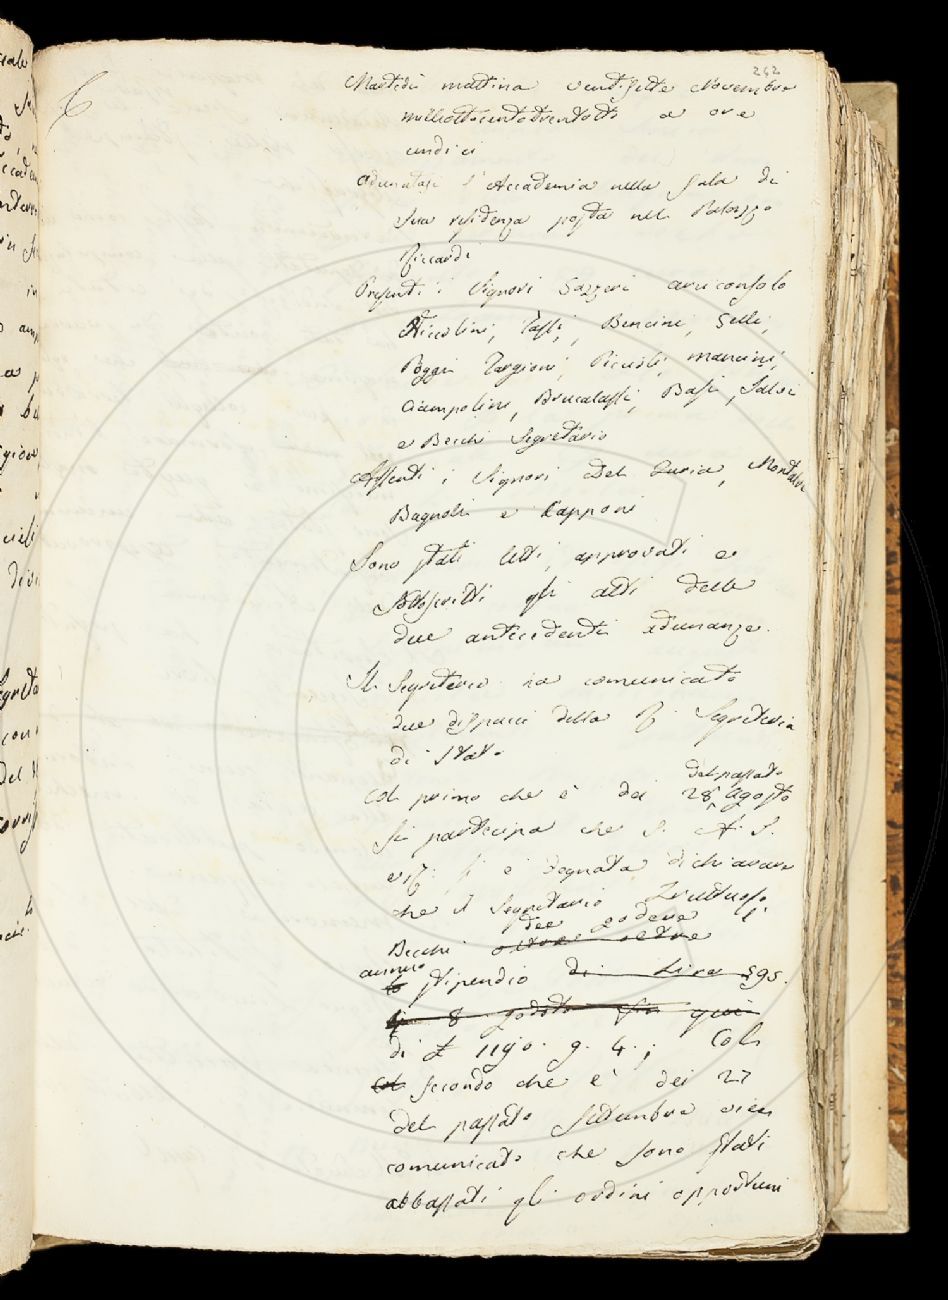 262
6
Martedì mattina ventisette Novembre
milleottocentotrentotto a ore
undici
Adunatasi l'Accademia nella Sala di
sua residenza posta nel Palazzo
Riccardi
Presenti i Signori Gazzeri arciconsolo
Niccolini, Tassi, Bencini, Gelli,
Poggi Targioni, Piccioli, Mancini,
Ciampolini, Brucalassi, Basi, Salvi
e Becchi Segretario
Assenti i Signori Del Furia, Montalvi
Bagnoli e Capponi
Sono stati letti, approvati e
sottoscritti gli atti delle
due antecedenti adunanze.
Il Segretario ha comunicato
due dispacci della R. Segreteria
di Stato
Col primo che è dei 28 del passato Agosto
si partecipa che S. A. S.
e R. si è degnata dichiarare
che il Segretario Fruttuoso
Becchi dee godere
annuo stipendio di Lire 595.
di £ 1190. 9. 4.; Col
secondo che è dei 27
del passato Settembre vien
comunicato che sono stati
abbassati gli ordini opportuni